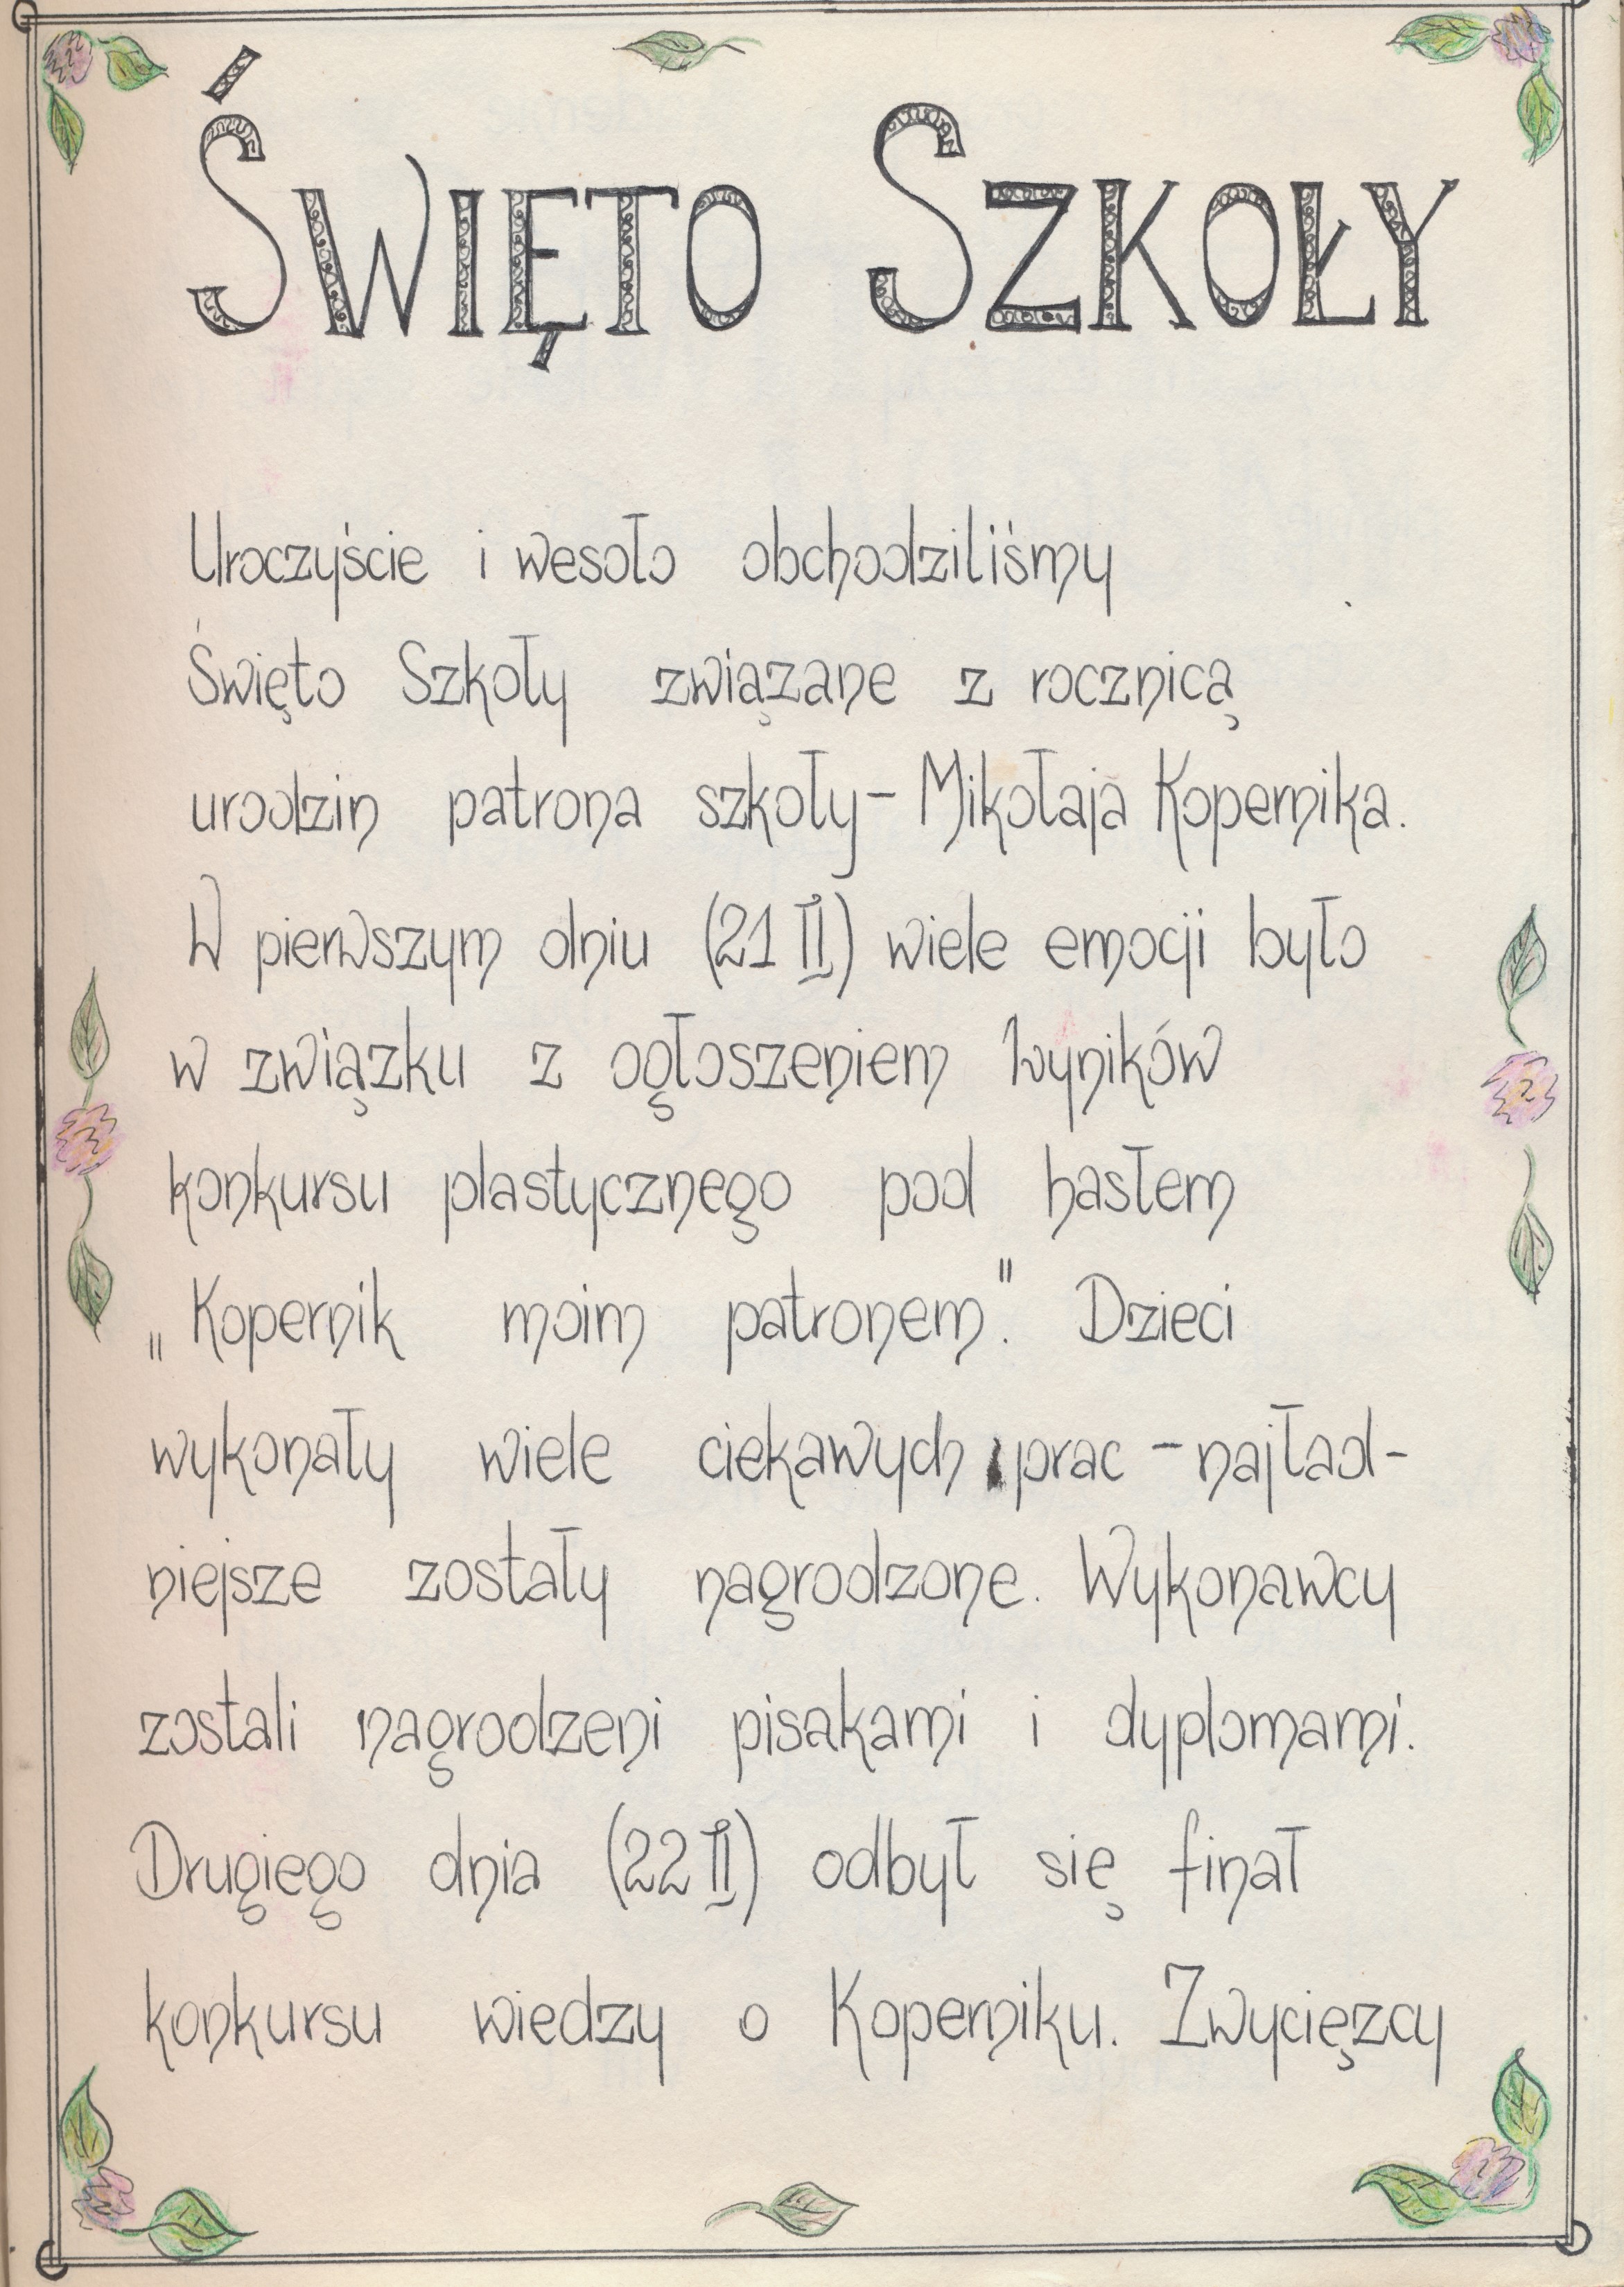 ŚWIĘTO SZKOŁY
Uroczyście i wesoło obchodziliśmy
Święto Szkoły związane z rocznicą
urodzin patrona szkoły - Mikołaja Kopernika.
W pierwszym dniu (21 II) wiele emocji było
w związku z ogłoszeniem wyników
konkursu plastycznego pod hasłem
„Kopernik moim patronem". Dzieci
wykonały wiele ciekawych prac - najład-
niejsze zostały nagrodzone. Wykonawcy
zostali nagrodzeni pisakami i dyplomami.
Drugiego dnia (22 II) odbył się finał
konkursu wiedzy o Koperniku. Zwycięzcy